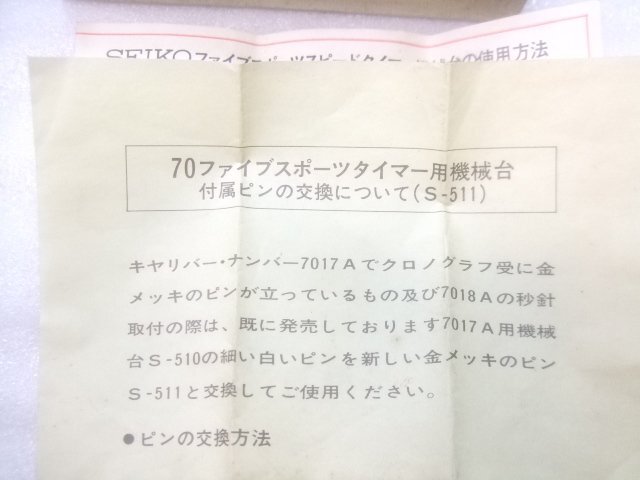 SEIKOファイブスポーツスピードタイマー
台の使用方法
70ファイブスポーツタイマー用機械台
付属ピンの交換について(S-511)
キャリバー・ナンバー7017Aでクロノグラフ受に金
メッキのピンが立っているもの及び7018Aの秒針
取付の際は、既に発売しております7017A用機械
台S-510の細い白いピンを新しい金メッキのピン
S-511と交換してご使用ください。
●ピンの交換方法